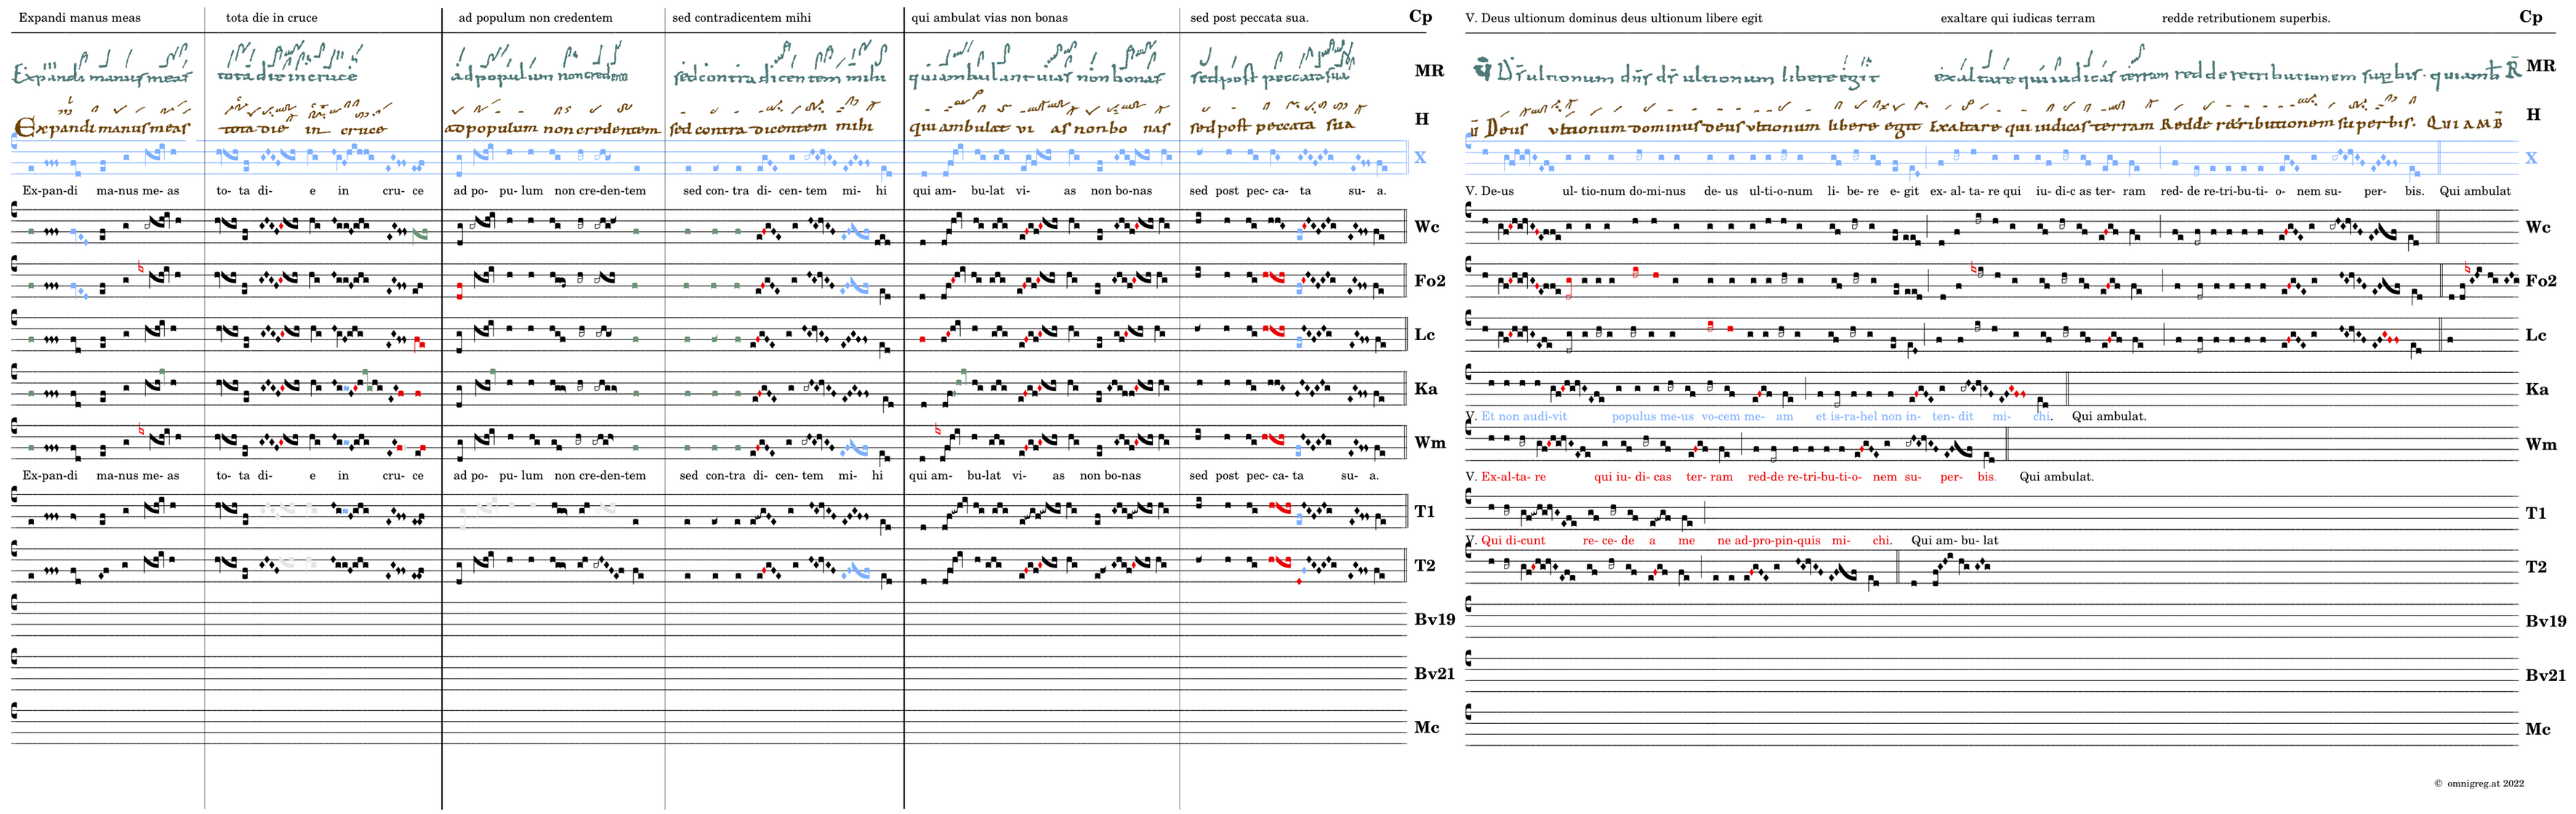 Expandi manus meas tota die in cruce ad populum non credentem sed contradicentem mihi qui ambulat vias non bonas sed post peccata sua. Cp
Expandi manus meas tota die in cruce ad populum non credentem sed contradicentem mihi qui ambulant vias non bonas sed post peccata sua MR
Expandi manus meas tota die in cruce ad populum non credentem sed contra dicentem mihi qui ambulat vi as non bo nas sed post peccata sua H
X
Ex-pan-di ma-nus me- as to- ta di- e in cru- ce ad po- pu- lum non cre-den-tem sed con- tra di- cen- tem mi- hi qui am- bu-lat vi- as non bo-nas sed post pec- ca- ta su- a.
Wc
Fo2
Lc
Ka
Wm
Ex-pan-di ma-nus me- as to- ta di- e in cru- ce ad po- pu- lum non cre-den-tem sed con-tra di- cen- tem mi- hi qui am- bu-lat vi- as non bo-nas sed post pec- ca- ta su- a.
T1
T2
Bv19
Bv21
Mc
V. Deus ultionum dominus deus ultionum libere egit exaltare qui iudicas terram redde retributionem superbis. Cp
ultionum dns ds ultionum libere egit exaltare qui iudicas terram redde retributionem MR
Deus ultionum dominus deus ultionum libere egit Exaltare qui iudicas terram Redde retributionem superbis. QUI AMB H
X
V. De-us ul- tio-num do-mi-nus de- us ul-ti-o-num li- be- re e- git ex- al- ta- re qui iu- di-c as ter- ram red- de re-tri-bu-ti- o- nem su- per- bis. Qui ambulat
Wc
Fo2
Lc
Ka
V. Et non audi-vit populus me-us vo-cem me- am et is-ra-hel non in- ten- dit mi- chi. Qui ambulat.
Wm
V. Ex-al-ta- re qui iu- di- cas ter- ram red-de re-tri-bu-ti-o- nem su- per- bis. Qui ambulat.
T1
V. Qui di-cunt re- ce- de a me ne ad-pro-pin-quis mi- chi. Qui am- bu- lat
T2
Bv19
Bv21
Mc
© omnigreg.at 2022